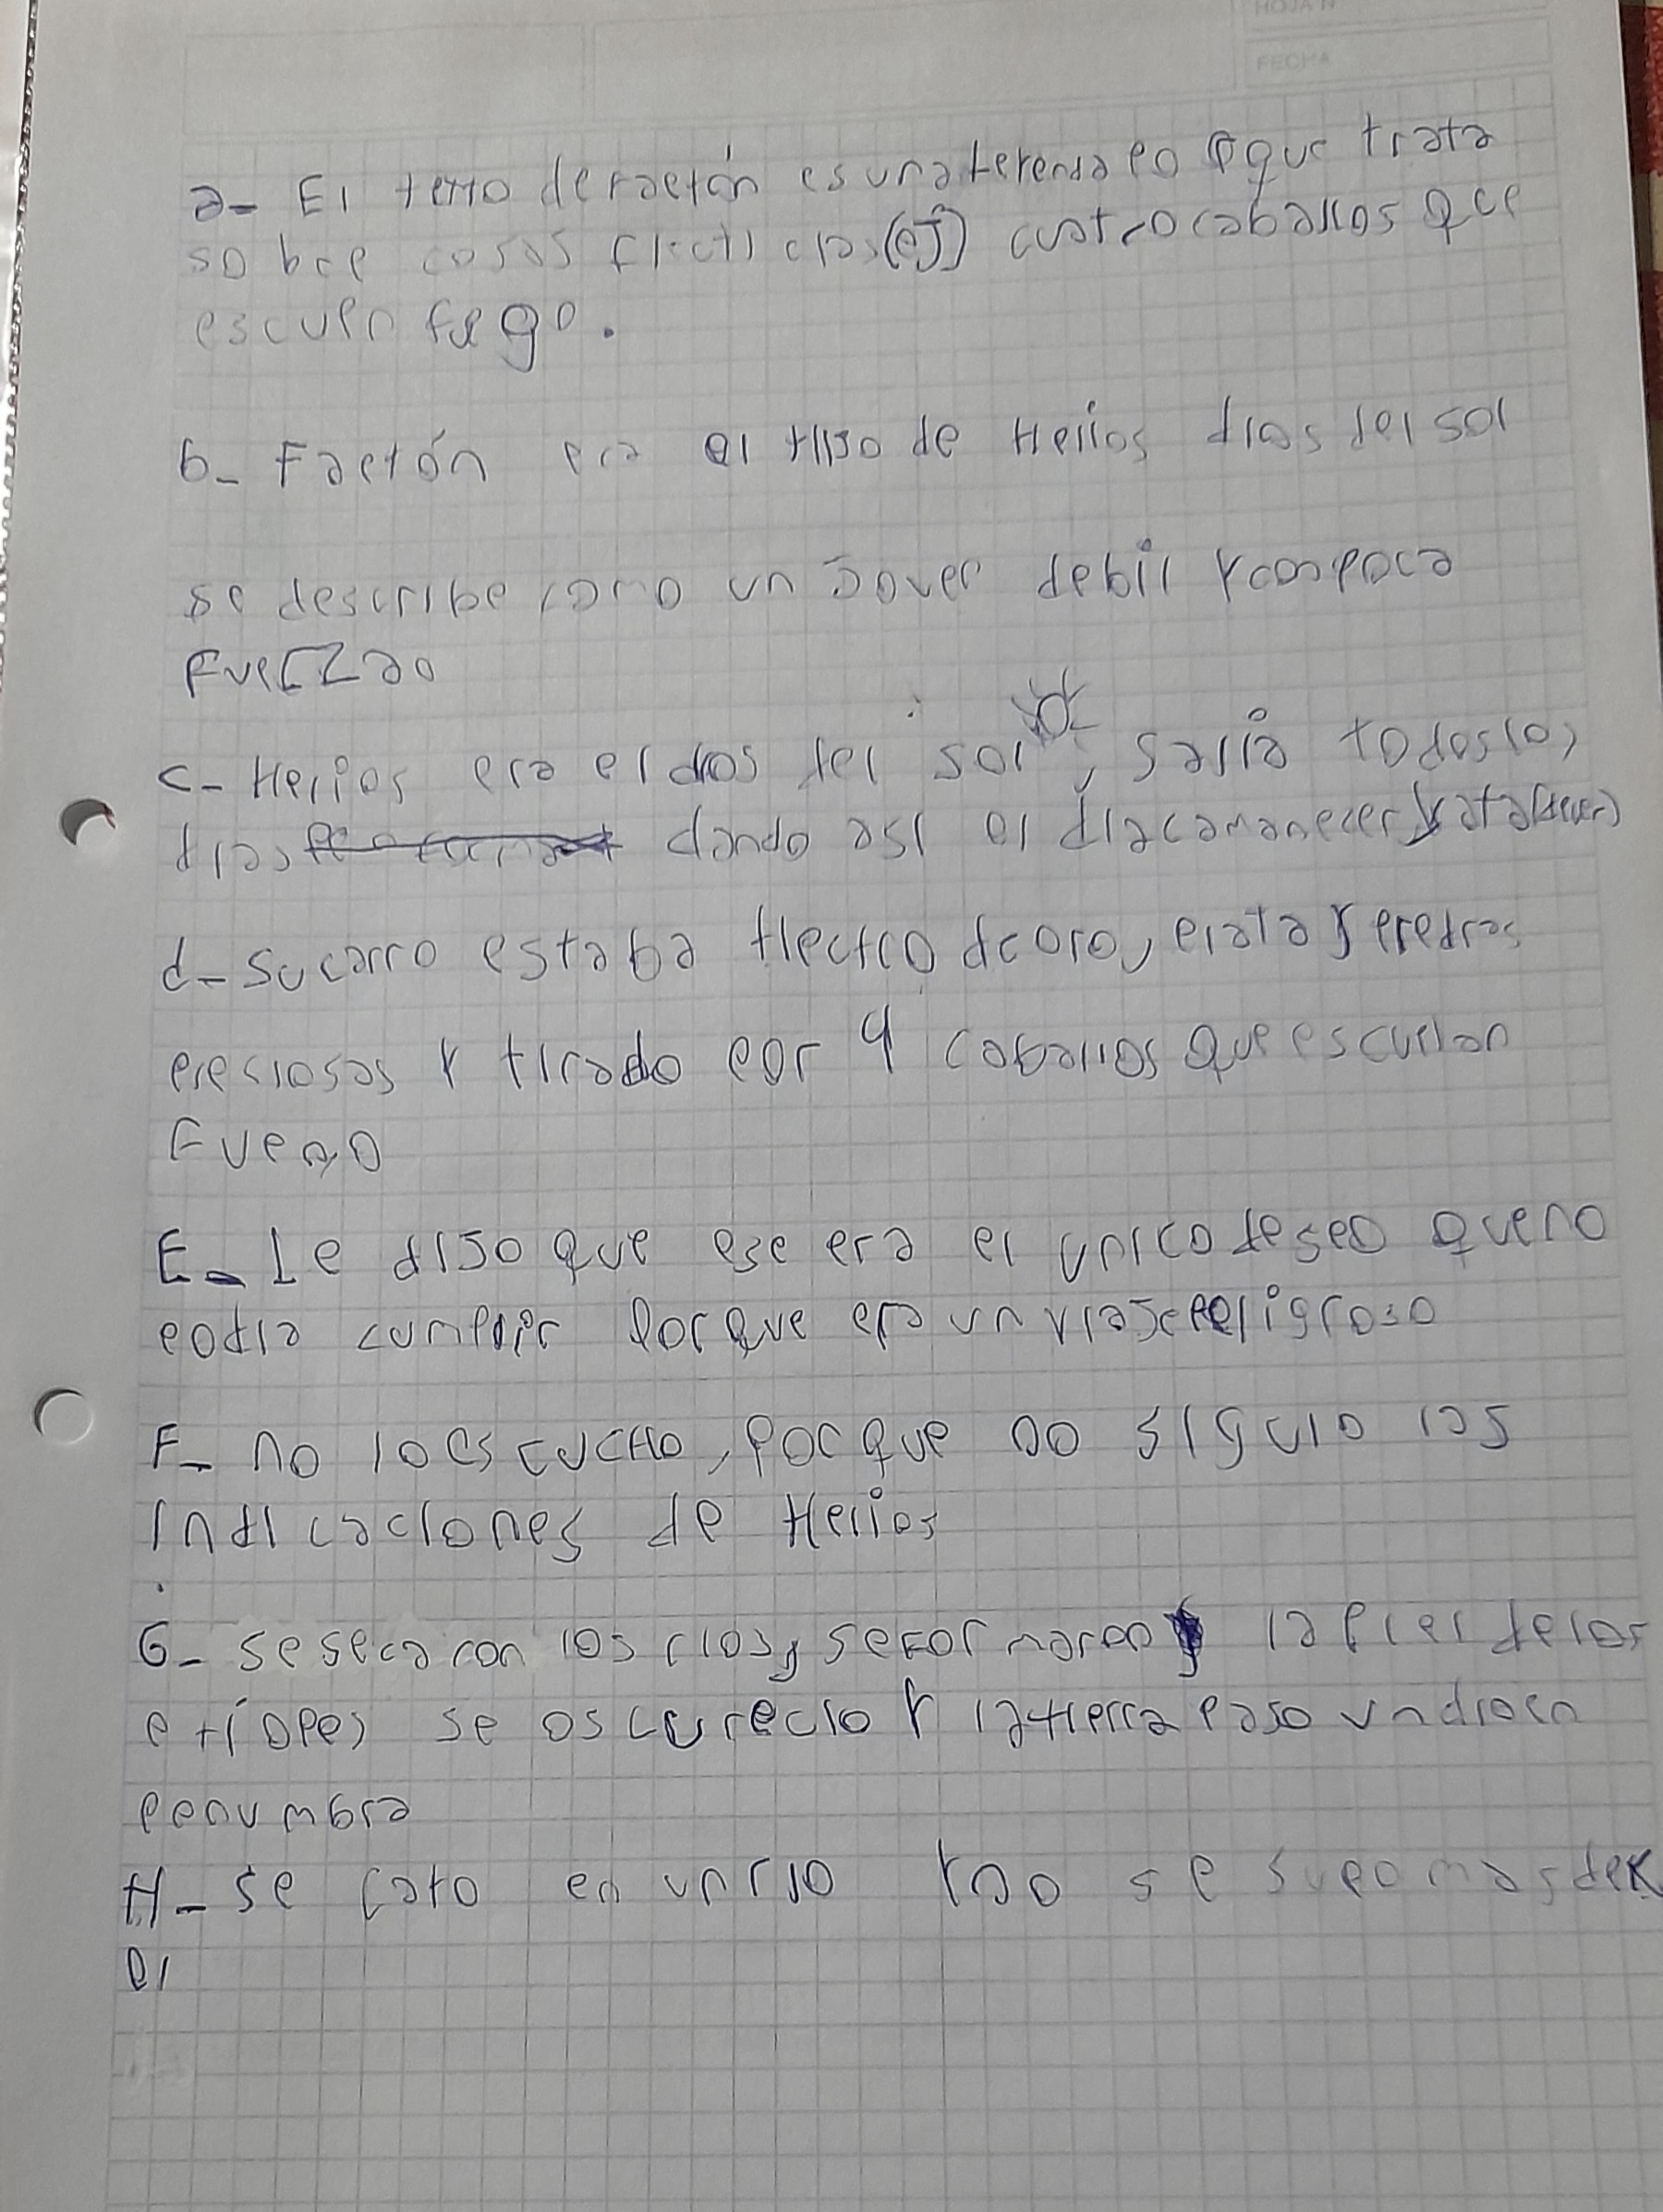 HOJA N
FECHA
a- El texto de faetón es una leyenda po que trata
sobre cosas ficticias (ej) cuatro caballos que
escupen fuego.
b- Faetón era el Hijo de Helios dios del sol
se describe como un joven debil y con poca
fuerza
c- Helios era el dios del sol, salia todos los
dias dando asi el dia amanecer y atardecer
d- su carro estaba Hecho de oro, plata y piedras
preciosas y tirado por 4 caballos que escupian
Fuego
E- Le dijo que ese era el unico deseo que no
podia cumplir porque era un viaje peligroso
F- no lo escucHo, porque no siguio las
indicaciones de Helios
G- se secaron los rios, se formaron la piel de los
etíopes se oscurecio y la tierra paso un dia en
penumbra
H- se cayo en un rio y no se supo mas de
el